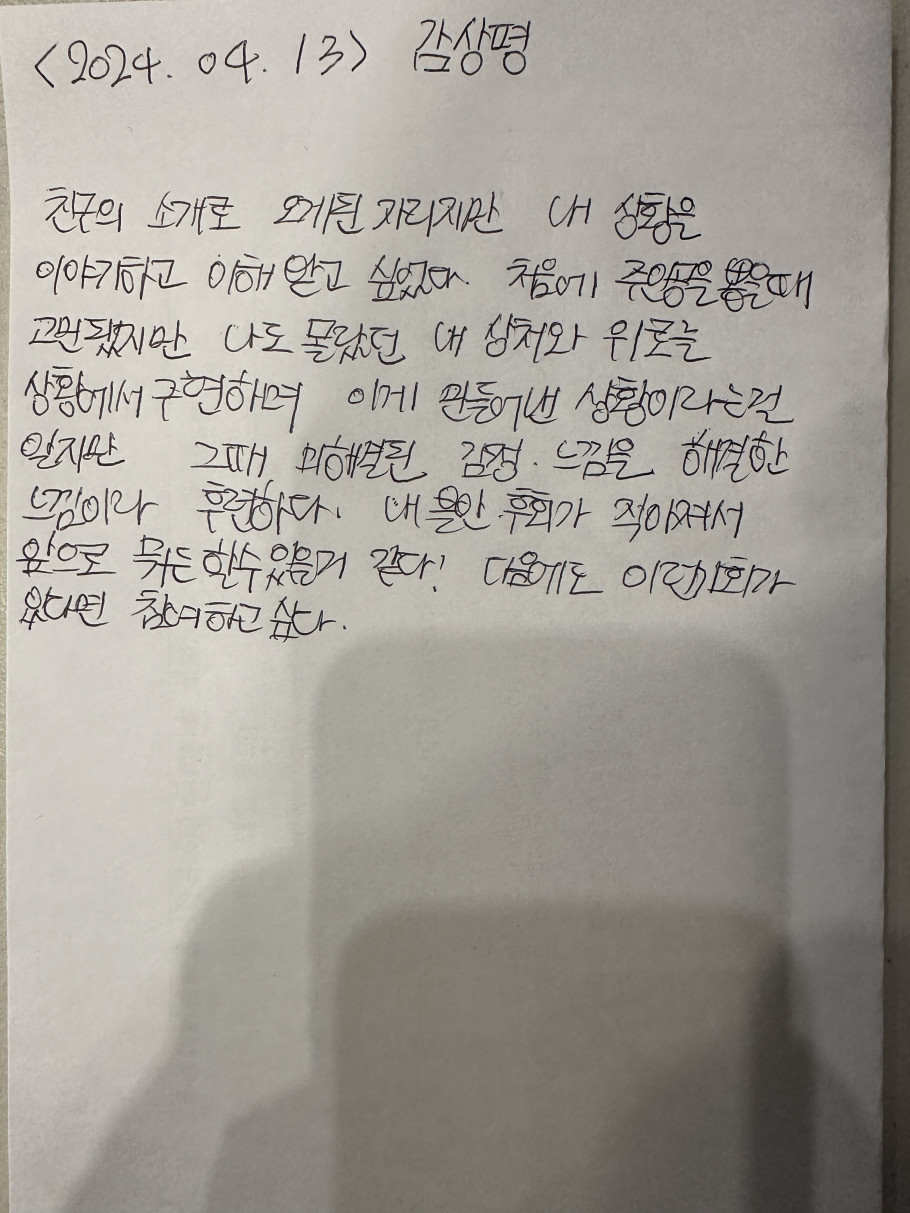 <2024. 04. 13> 감상평
친구의 소개로 오게된 자리지만 내 상황을
이야기하고 이해 받고 싶었다. 처음에 주인공을 뽑을때
고민됐지만 나도 몰랐던 내 상처와 위로를
상황에서 구현하며 이게 만들어낸 상황이라는건
알지만 그때 미해결된 감정. 느낌을 해결한
느낌이라 후련하다. 내 불안 후회가 적어져서
앞으로 뭐든 할수 있을거 같다! 다음에도 이런기회가
있다면 참여하고 싶다.